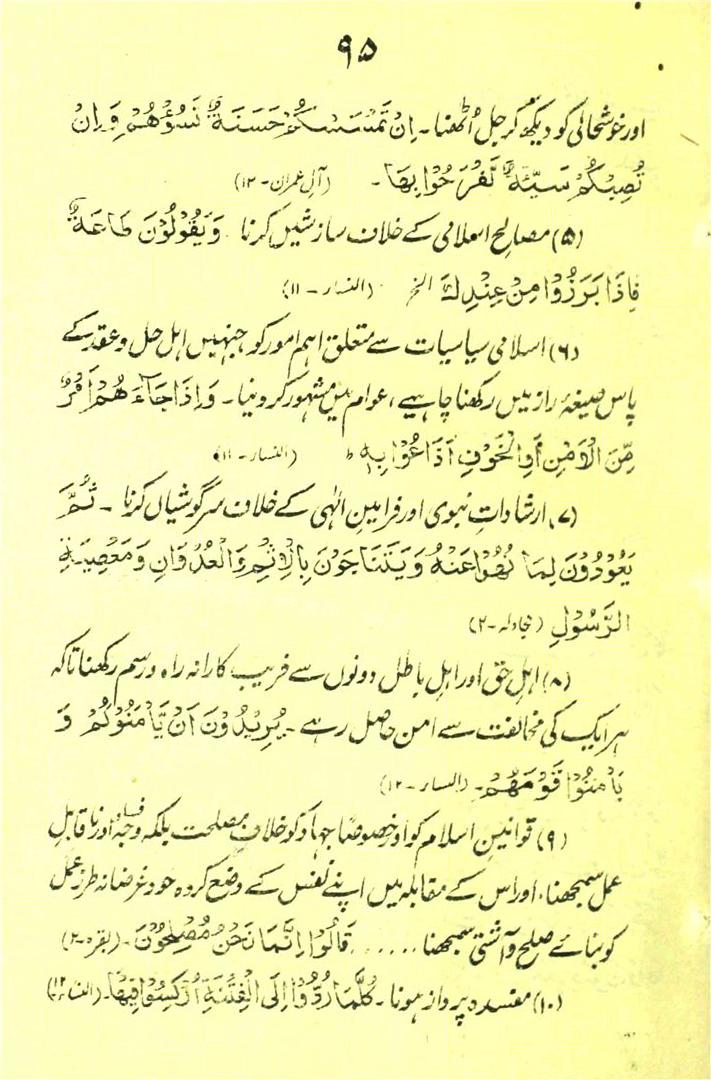 ۹۵
اور خوشحالی کو دیکھ کر جل اُٹھنا۔ اِنْ تَمْسَسْكُمْ حَسَنَةٌ تَسُؤْهُمْ وَاِنْ
تُصِبْكُمْ سَيِّئَةٌ يَّفْرَحُوْا بِهَا۔ (آلِ عمران۔ ۱۲)
(۵) مصالحِ اسلامی کے خلاف سازشیں کرنا وَيَقُوْلُوْنَ طَاعَةٌ
فَاِذَا بَرَزُوْا مِنْ عِنْدِكَ الخ (النسار۔ ۱۱)
(۶) اسلامی سیاسیات سے متعلق اہم امور کو، جنہیں اہل حل و عقد کے
پاس صیغۂ راز میں رکھنا چاہیے، عوام میں مشہور کر دنیا۔ وَاِذَا جَآءَ هُمْ اَمْرٌ
مِّنَ الْاَمْنِ اَوِ الْخَوْفِ اَذَاعُوْا بِهٖ ط (النسار۔ ۱۱)
(۷) ارشاداتِ نبوی اور فرامینِ الٰہی کے خلاف سرگوشیاں کرنا۔ ثُمَّ
يَعُوْدُوْنَ لِمَا نُهُوْا عَنْهُ وَيَتَنَاجَوْنَ بِالْاِثْمِ وَالْعُدْوَانِ وَمَعْصِيَةِ
الرَّسُوْلِ (مجادلہ۔ ۲)
(۸) اہلِ حق اور اہلِ باطل دونوں سے فریب کارانہ راہ و رسم رکھنا تاکہ
ہر ایک کی مخالفت سے امن حاصل رہے۔ يُرِيْدُوْنَ اَنْ يَّاْمَنُوْكُمْ وَ
يَاْمَنُوْا قَوْمَهُمْ۔ (النسار۔ ۱۲)
(۹) قوانینِ اسلام کو اور خصوصًا جہاد کو خلافِ مصلحت بلکہ وجہِ فساد اور ناقابلِ
عمل سمجھنا، اور اس کے مقابلہ میں اپنے نفس کے وضع کردہ خود غرضانہ طرزِ عمل
کو بنائے صلح و آشتی سمجھنا ...... قَالُوْا اِنَّمَا نَحْنُ مُصْلِحُوْنَ۔ (بقرہ۔ ۲)
(۱۰) مفسدہ پرداز ہونا۔ كُلَّمَا رُدُّوْا اِلَى الْفِتْنَةِ اُرْكِسُوْا فِيْهَا۔ (النساء۔ ۱۲)